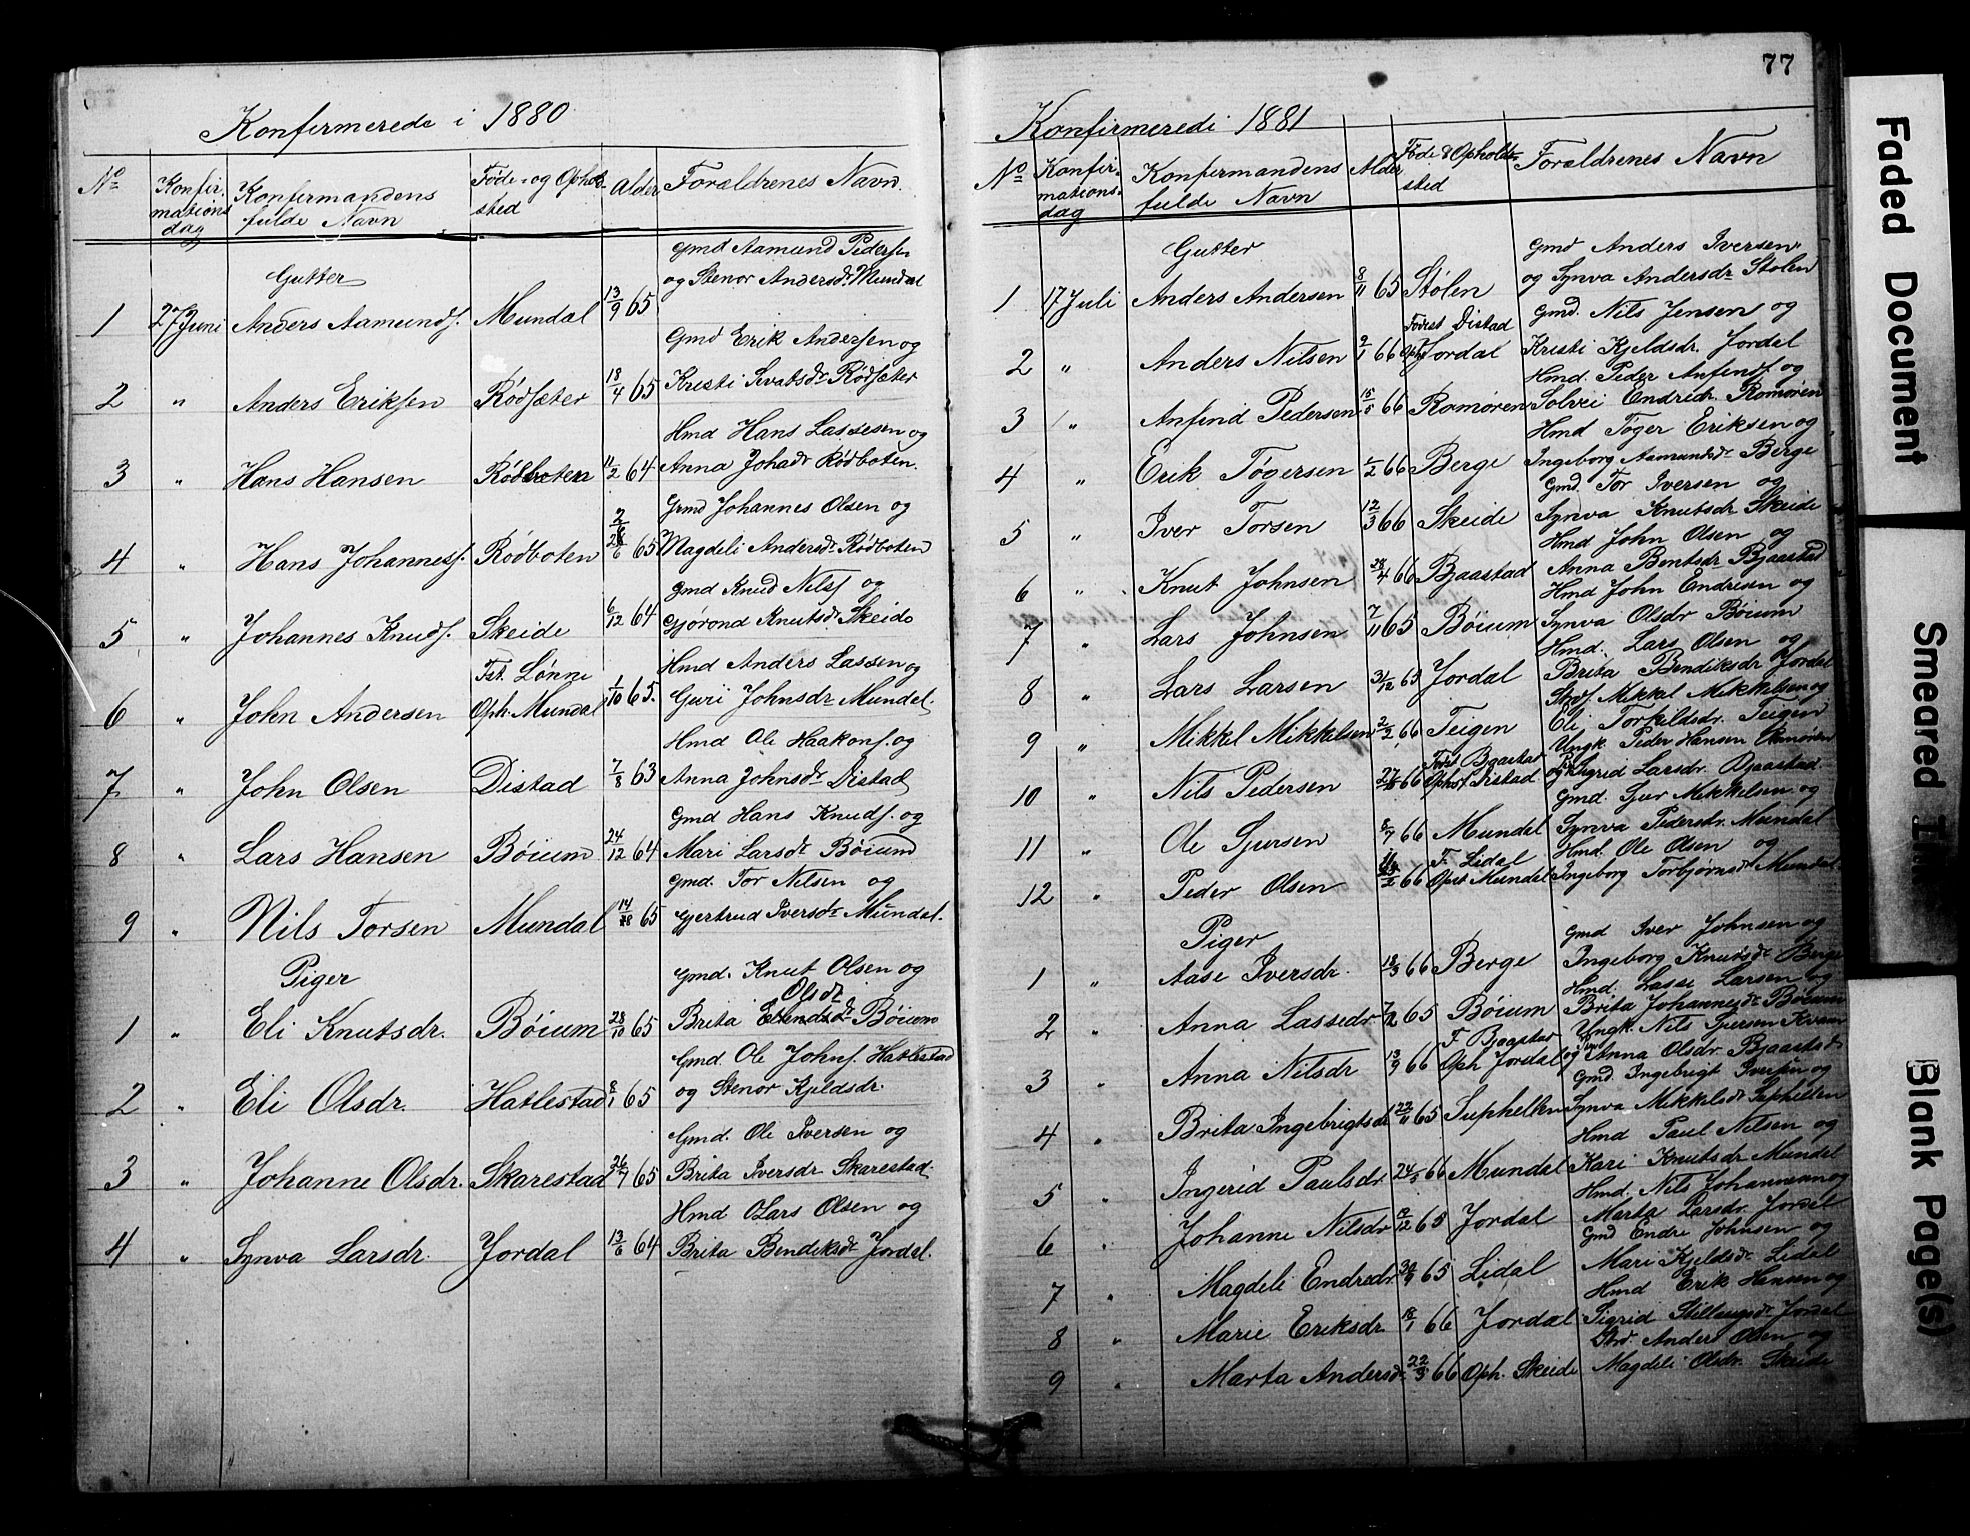 77
Konfermerede i 1880
No Konfir. mations dag Konfermandens fulde Navn Føde- og Opholdsted Alder Forældrenes Navn.
Gutter
Gmd Aamund Pedersen
og Stenor Andersdr Mundal
1 27 Juni Anders Aamunds. Mundal 13/9 65
Gmd Erik Andersen og
2 " Anders Eriksen Rødsæter 18/4 65 Kristi Sivatsdr Rødsæter
Hmd Hans Lassesen og
3 " Hans Hansen Rødboten 11/2 64 Anna Johadr Rødboten.
Gmd Johannes Olsen og
4 " Hans Johanness. Rødboten 65 Magdeli Andersdr Rødboten
Gmd Knud Nilss og
5 " Johannes Knuds. Skeide 6/12 64 Gjørond Knutsdr Skeide
Fst. Lønne Hmd Anders Lassen og
6 " John Andersen Oph. Mundal 1/10 65. Guri Johnsdr Mundal.
Hmd Ole Haakons. og
7 " John Olsen Distad 7/8 63 Anna Johnsdr Distad
Gmd Hans Knuds. og
8 " Lars Hansen Bøium 24/12 64 Mari Larsdr Bøium
Gmd. Tor Nilsen og
9 " Nils Torsen Mundal 65 Gjertrud Iversdr Mundal.
Piger Gmd. Knut Olsen og
Olsdr
1 " Eli Knutsdr. Bøium 28/10 65 Brita Bøium
Gmd. Ole Johns. Hatlestad
2 " Eli Olsdr. Hatlestad 8/1 65 og Stenor Kjeldsdr.
Gmd. Ole Iversen og
3 " Johanne Olsdr. Skarestad 26/7 65 Brita Iversdr Skarestad.
Hmd Lars Olsen og
4 " Synva Larsdr. Jordal 13/6 64 Brita Bendiksdr Jordal.
Konfirmeredi 1881
No Konfir. mations. dag Konfermandens fulde Navn Alder Føde & Opholdssted Forældrenes Navn
Gutter Gmd Anders Iversen
og Synva Andersdr Stølen
1 17 Juli Anders Andersen 8/11 65 Stølen
Gmd. Nils Jensen og
Fødest Distad
2 " Anders Nilsen 2/1 66 Oph Jordal Kristi Kjeldsdr. Jordal
Hmd. Peder Anfinds og
3 " Anfind Pedersen 15/5 66 Romøren Solvei Endredr. Romøren
Hmd Tøger Eriksen og
4 " Erik Tøgersen 1/2 66 Berge Ingeborg Aamundsdr Berge
Gmd. Tor Iversen og
5 " Iver Torsen 12/3 66 Skeide Synva Knutsdr Skeide
Hmd John Olsen og
6 " Knut Johnsen 28/4 66 Bjaastad Anna Bentsdr Bjaastad
Hmd John Endresen og
7 " Lars Johnsen 7/11 65 Bøium Synva Olsdr Bøium
Hmd. Lars Olsen og
8 " Lars Larsen 31/12 63 Jordal Brita Bendiksdr Jordal
Mikkel Mikkelsen og
9 " Mikkel Mikkelsen 2/2 66 Teigen Eli Torkildsdr. Teigen
Ungk. Peder Hansen Romøren
Føds Bjaastad
10 " Nils Pedersen 66 Ophst Distad og Sigrid Larsdr. Bjaastad.
Gmd. Gjur Mikkelsen og
11 " Ole Gjursen 8/7 66 Mundal Synva Pedersdr. Mundal
F. Lidal Hmd. Ole Olsen og
12 " Peder Olsen 66 Opst Mundal Ingeborg Torbjørnsdr Mundal
Piger Gmd Iver Johnsen og
1 " Aase Iversdr. 18/3 66 Berge Ingeborg Knutsdr Berge
Hmd. Lasse Larsen og
2 " Anna Lassedr 7/12 65 Bøium Brita Johannesdr Bøium
F Bjaastad Ungk. Nils Gjursen Kvam
3 " Anna Nilsdr 13/9 66 Oph Jordal og Anna Olsdr Bjaastad.
Gmd. Ingebrigt Iversen og
4 " Brita Ingebrigtsdr 22/11 65 Suphellen Synva Mikkelsdr Suphellen
Hmd Paul Nilsen og
5 " Ingerid Paulsdr 24/5 66 Mundal Kari Knutsdr Mundal
Hmd. Nils Johannesen og
6 " Johanne Nilsdr 65 Jordal Marta Larsdr. Jordal
Gmd Endre Johnsen og
7 " Magdeli Endredr 65 Lidal Mari Kjeldsdr Lidal
Hmd Erik Hansen og
8 " Marie Eriksdr 18/1 66 Jordal Sigrid Jordal
Anders Olsen og
9 " Marta Andersdr 22/3 66 Oph. Skeide Magdeli Olsdr. Skeide
Faded Document
Smeared
Blank Page(s)